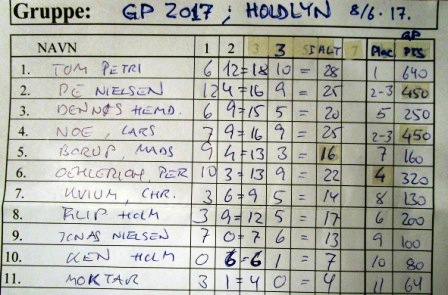 Gruppe: GP 2017 ; HOLDLYN 8/6-17.
NAVN 1 2 3 3 5 I ALT 7 Plac. GP PTS
1. TOM PETRI 6 12=18 10 = 28 1 640
2. PE NIELSEN 12 4=16 9 = 25 2-3 450
3. DENNIS HEMD. 6 9=15 5 = 20 5 250
4. NOE, LARS 7 9=16 9 = 25 2-3 450
5. BORUP, MADS 9 4=13 3 = 16 7 160
6. OCHLERICH, PER 10 3=13 9 = 22 4 320
7. KVIUM, CHR. 3 6=9 5 = 14 8 130
8. FILIP HOLM 3 9=12 5 = 17 6 200
9. JONAS NIELSEN 7 0=7 6 = 13 9 100
10. KEN HOLM 0 6=6 1 = 7 10 80
11. MOKTAR 3 1=4 0 = 4 11 64